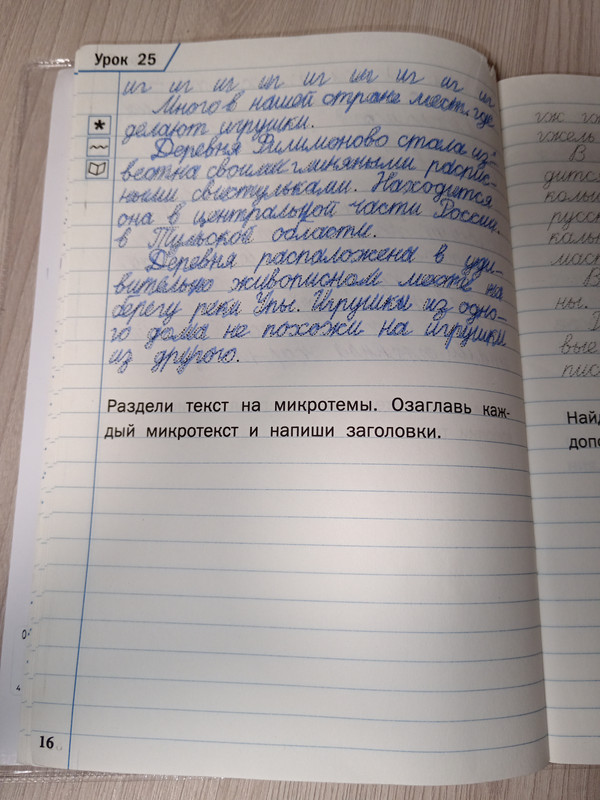 Урок 25
иг иг иг иг иг иг иг иг иг
Много в нашей стране мест, где
делают игрушки.
Деревня Филимоново стала из-
вестна своими глиняными распис-
ными свистульками. Находится
она в центральной части России,
в Тульской области.
Деревня расположена в уди-
вительно живописном месте на
берегу реки Упы. Игрушки из одно-
го дома не похожи на игрушки
из другого.
Раздели текст на микротемы. Озаглавь каж-
дый микротекст и напиши заголовки.
16
гж
гжель
В
дится
кольк
русск
маст
В
ны.
вые
пис
Най
допо